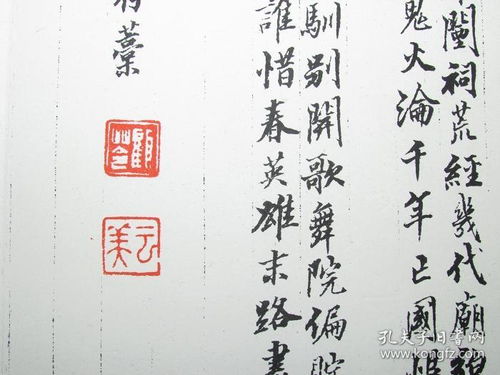 閩祠荒經幾代廟
鬼火淪千年亡國
馴別開歌舞院偏貯
誰惜春英雄末路
藁
顧苓
云美
孔夫子旧书网
www.kongfz.com